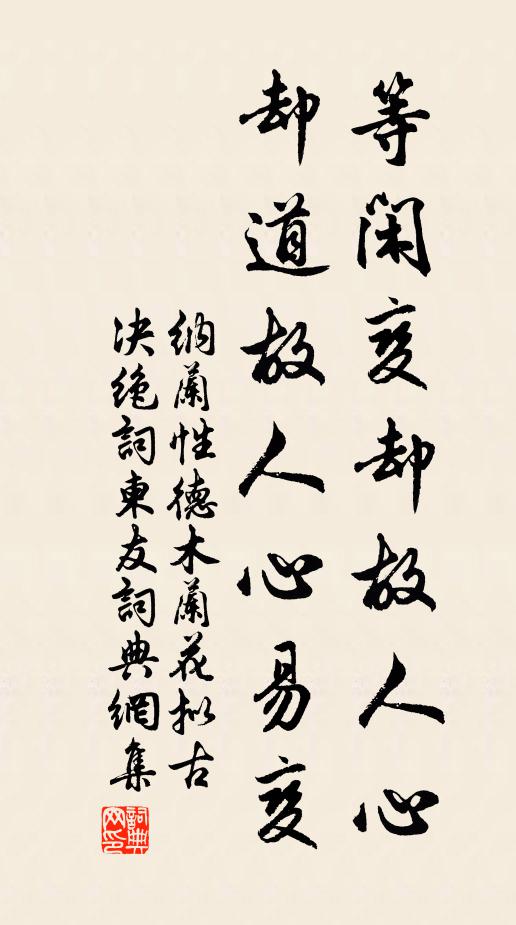 等闲变却故人心
却道故人心易变
納蘭性德木蘭花拟古
决绝詞東友詞典網集
詞典网印